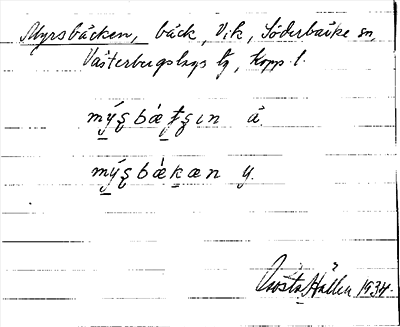 Myrsbäcken, bäck, Vik, Söderbärke sn,
Västerbergslags tg, Kopp. l.
mýʂbæ̀ţʂın ä.
mýʂbæ̀kæn y.
Gösta Hallén 1934.